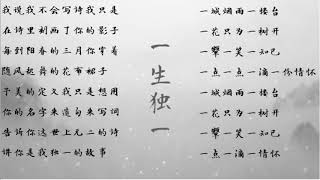 我说我不会写诗我只是
在诗里刻画了你的影子
每到阳春的三月你穿着
随风起舞的花布裙子
于美的定义我只是想用
你的名字来造句来写词
告诉你这世上无二的诗
讲你是我独一的故事
一生独一
一城烟雨一楼台
一花只为一树开
一颦一笑一知己
一点一点一滴一份情怀
一城烟雨一楼台
一花只为一树开
一颦一笑一知己
一点一滴一情怀